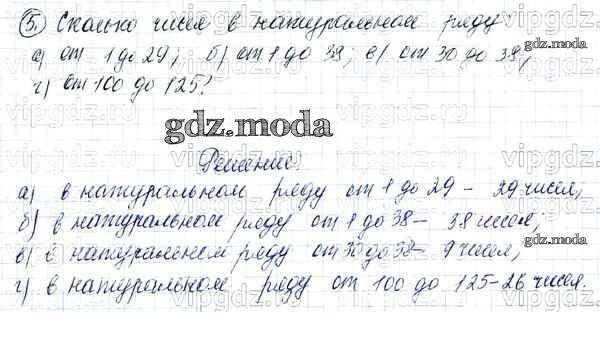 5. Сколько чисел в натуральном ряду
а) от 1 до 29; б) от 1 до 38; в) от 30 до 38;
г) от 100 до 125?
gdz.moda
Решение.
а) в натуральном ряду от 1 до 29 – 29 чисел,
б) в натуральном ряду от 1 до 38 – 38 чисел;
в) в натуральном ряду от 30 до 38 – 9 чисел,
г) в натуральном ряду от 100 до 125 – 26 чисел.
gdz.moda
gdz.moda